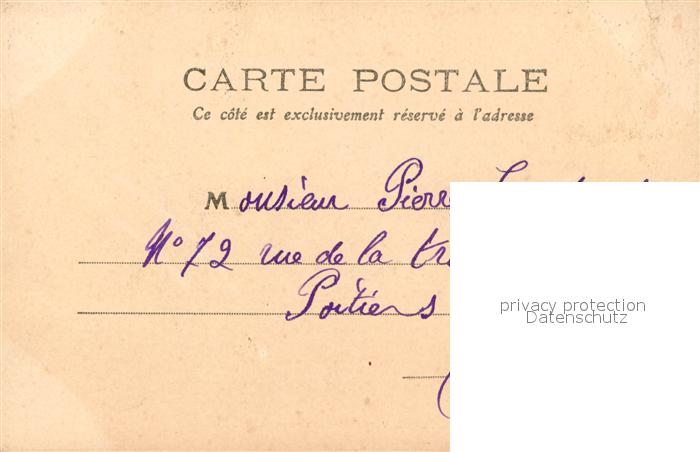 CARTE POSTALE
Ce côté est exclusivement réservé à l'adresse
Monsieur Pierre
N° 72 rue de la
Poitiers
privacy protection
Datenschutz